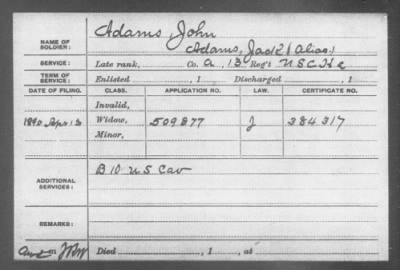 NAME OF SOLDIER: Adams, John
Adams, Jack (Alias)
SERVICE: Late rank, Co. A, 13 Reg't U S C H a
TERM OF SERVICE: Enlisted , 1 Discharged , 1
DATE OF FILING. CLASS. APPLICATION NO. LAW. CERTIFICATE NO.
Invalid,
1890 Sep 13 Widow, 509877 J 384317
Minor,
ADDITIONAL SERVICES: B 10 U S Cav
REMARKS:
Died , 1 , at